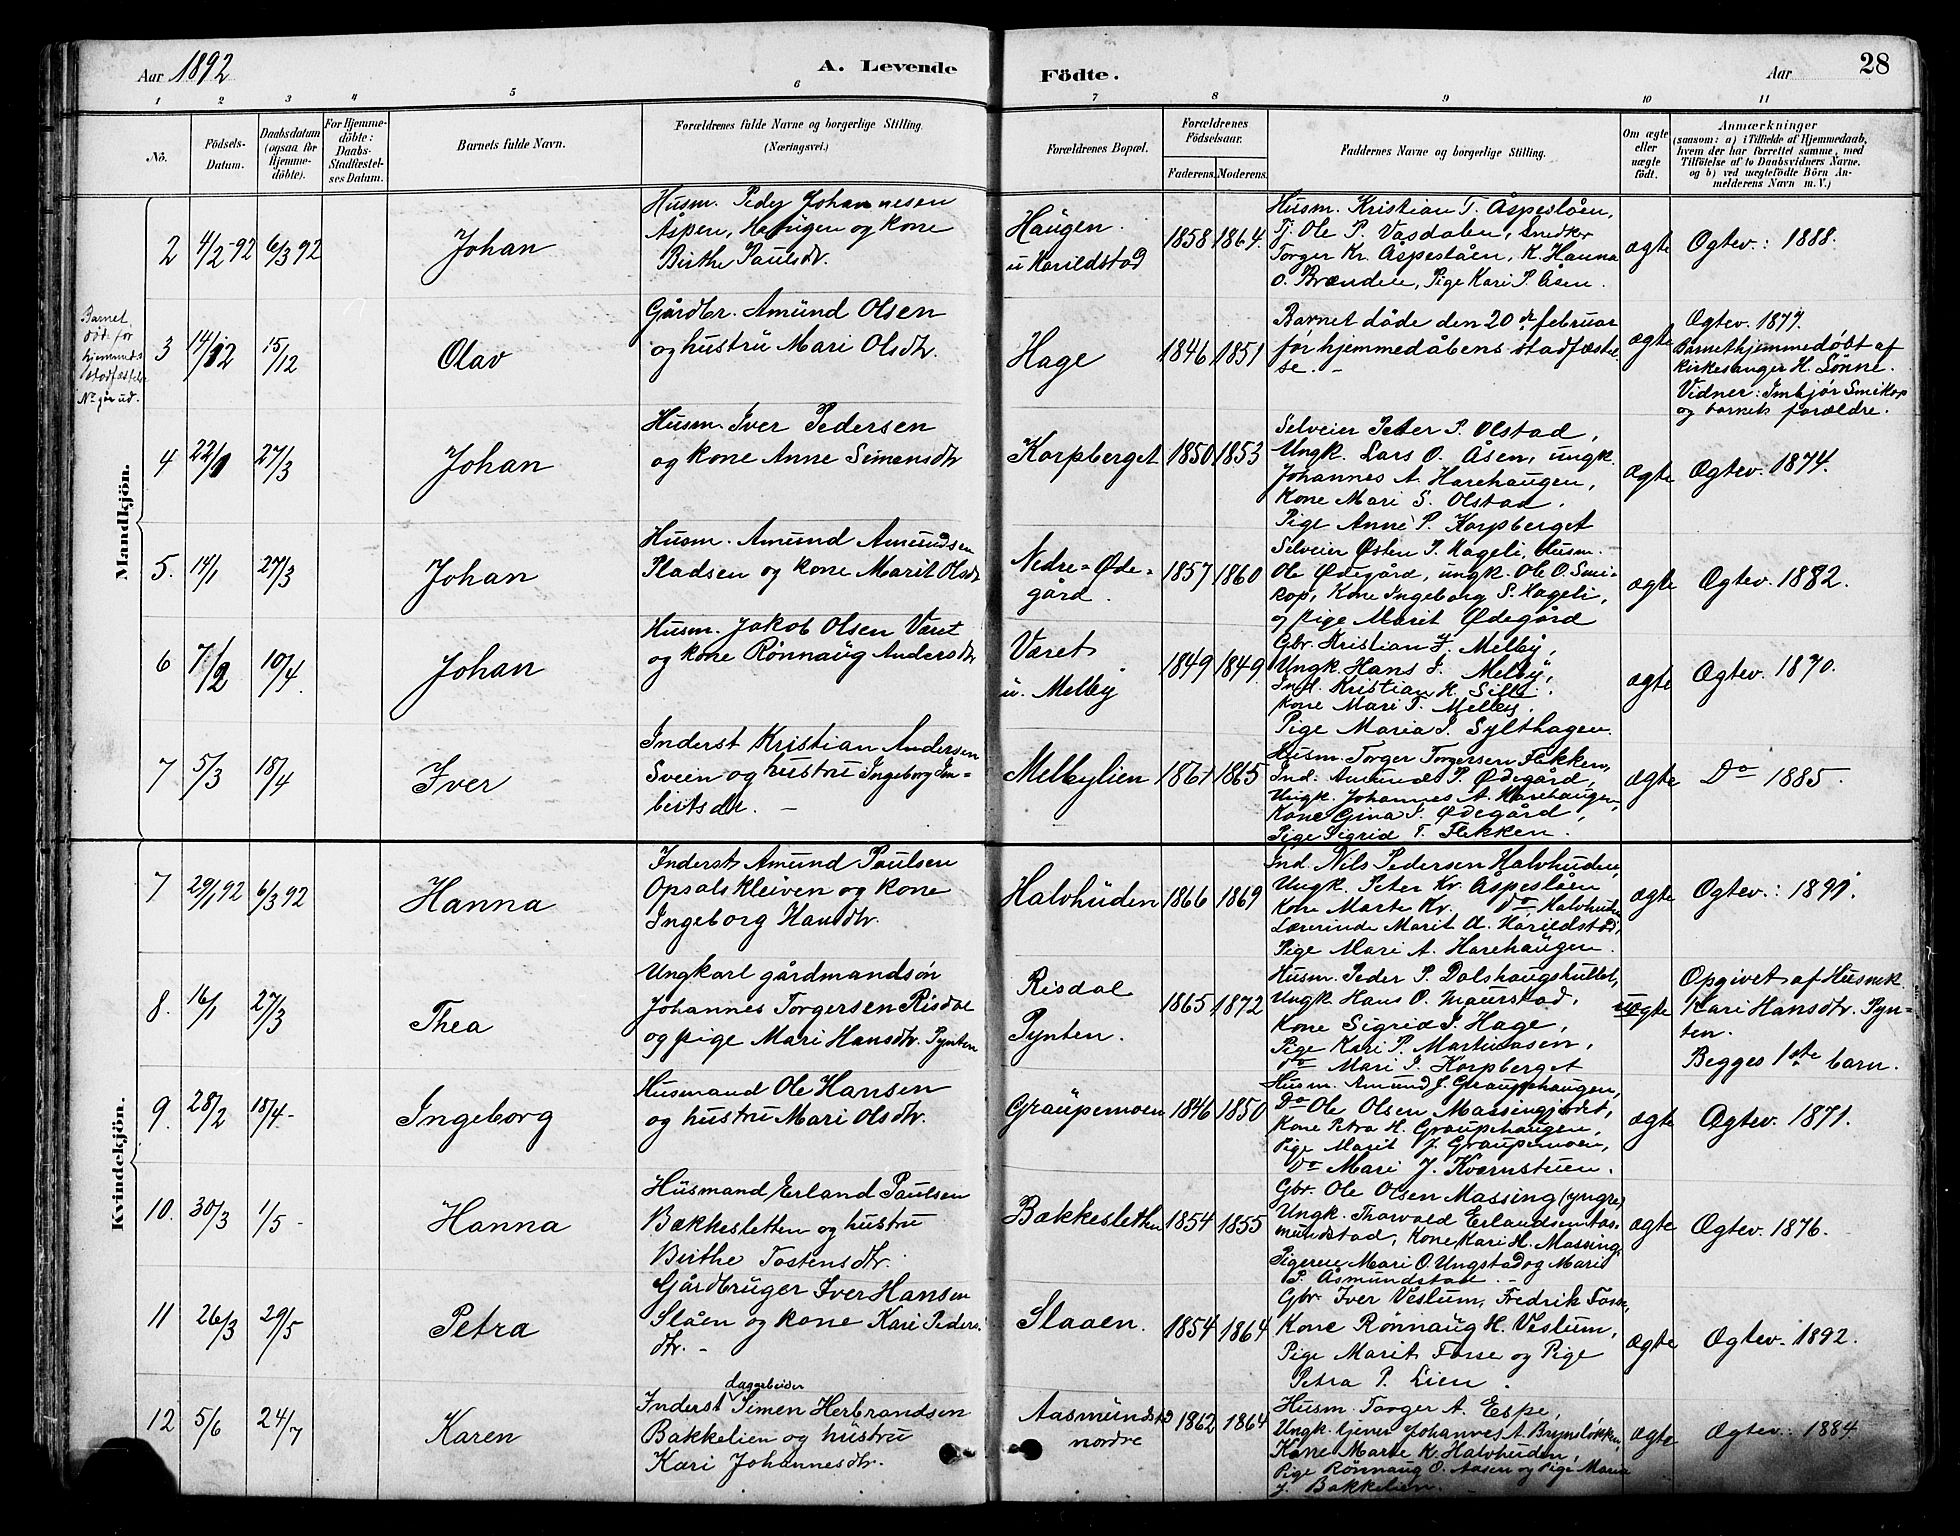 Aar 1892
A. Levende
Födte.
Aar
28
1 2 3 4 5 6 7 8 9 10 11
No.
Födsels-
Datum.
Daabsdatum
(ogsaa for
Hjemme-
döbte).
For Hjemme-
döbte:
Daabs-
Stadfæstel-
ses Datum.
Barnets fulde Navn.
Forældrenes fulde Navne og borgerlige Stilling.
(Næringsvei.)
Forældrenes Bopæl.
Forældrenes
Födselsaar.
Faderens. Moderens.
Faddernes Navne og borgerlige Stilling.
Om ægte
eller
uægte
födt.
Anmærkninger
(saasom: a) i Tilfælde af Hjemmedaab,
hvem der har forrettet samme, med
Tilföielse af to Daabsvidners Navne,
og b) ved uægtefödte Börn An-
melderens Navn m. V.)
Mandkjön.
2 4/2-92 6/3 92 Johan
Husm. Peder Johannesen
Åspen, Haugen og kone
Birthe Paulsdtr.
Haugen
u Harildstad
1858 1864.
Husm. Kristian T. Åspeslåen,
Tj. Ole P. Vasdalen, Snedker
Torger Kr. Åspeslåen, K. Hanna
O. Brænden, Pige Kari P. Åsen.
ægte
Ogtev.: 1888.
Barnet
död før
hjemmed.
stadfæstelse
No går ud.
3 14/12 15/12 Olav
Gårdbr. Amund Olsen
og hustru Mari Olsdtr.
Hage
1846 1851
Barnet døde den 20de februar
før hjemmedåbens stadfæstel
se. -
ægte
Ogtev. 1877.
Barnet hjemmedøbt af
kirkesanger H. Lønne.
Vidner: Imbjør Smikop
og barnets forældre.
4 22/1 27/3 Johan
Husm. Iver Pedersen
og kone Anne Simensdtr
Korpberget
1850 1853
Selveier Peter P. Olstad,
Ungk. Lars O. Åsen, ungk.
Johannes A. Harehaugen,
Kone Mari S. Olstad.
Pige Anne P. Korpberget
ægte
Ogtev. 1874.
5. 14/1 27/3 Johan
Husm. Amund Amundsen
Pladsen og kone Marit Olsdtr
Nedre-Øde-
gård.
1857 1860
Selveier Østen P. Hageli, Husm.
Ole Ødegård, ungk. Ole O. Smi-
kop, Kone Ingeborg S. Hageli,
og pige Marit Ødegård
ægte
Ogtev. 1882.
6 7/2 10/4 Johan
Husm. Jakob Olsen Været
og kone Rønnaug Andersdtr
Været
u. Melby
1849 1849.
Gbr. Kristian J. Melby,
Ungk. Hans J. Melby,
Ind. Kristian K. Silli.
Kone Mari P. Melby.
Pige Maria J. Sylthagen.
ægte
Ogtev. 1870.
7 5/3 18/4 Iver
Inderst Kristian Andersen
Svein og hustru Ingeborg Im-
bertsdtr. -
Melbylien
1861 1865
Husm. Torger Torgersen Flekken,
Ind. Amund P. Ødegård,
Ungk. Johannes A. Harehaugen,
Kone Gina S. Ødegård,
Pige Sigrid T. Flekken.
ægte
Do 1885.
Kvindekjön.
7 29/1 92 6/3 92 Hanna
Inderst Amund Paulsen
Opsalskleiven og kone
Ingeborg Hansdtr.
Halvhuden
1866 1869
Ind. Nils Pedersen Halvhuden,
Ungk. Peter Kr. Åspeslåen
Kone Marte Kr. Do, Halvhuden
Lærerinde Marit A. Harildstad,
Pige Mari A. Harehaugen.
ægte
Ogtev.: 1891.
8. 16/1 27/3 Thea
Ungkarl gårdmandsøn
Johannes Torgersen Risdal
og pige Mari Hansdtr. Pynten
Risdal
Pynten.
1865 1872
Husm. Peder P. Dalshaugshullet,
Ungk. Hans O. Maurstad,
Kone Sigrid J. Hage,
Pige Kari P. Martinusen,
Do Mari J. Korpberget
uægte
Opgivet af Husmk.
Kari Hansdtr. Pyn-
ten.
Begges 1ste barn.
9. 28/2 18/4- Ingeborg
Husmand Ole Hansen
og hustru Mari Olsdtr.
Graupemoen
1846 1850
Husm. Amund J. Graupehaugen,
Do Ole Olsen Massengjordet,
Kone Petra H. Graupehaugen,
Pige Marit J. Graupemoen,
Do Mari J. Kvernstuen.
ægte
Ægtev. 1871.
10. 30/3 1/5- Hanna
Husmand Erland Paulsen
Bækkesletten og hustru
Birthe Tostensdtr.
Bakkesletten
1854 1855
Gbr. Ole Olsen Massing (yngre)
Ungk. Thorvald Erlandsen Aas-
mundstad, Kone Kari H. Massing,
Pigerne Mari O. Ungstad og Mari
P. Åsmundstad. -
ægte
Ægtev. 1876.
11 26/3 29/5 Petra
Gårdbruger Iver Hansen
Slåen og kone Kari Peders-
dtr. -
Slaaen.
1854 1864
Gbr Iver Veslum, Fredrik Fosse,
Kone Rønnaug H. Veslum,
Pige Marit Forse og Pige
Petra P. Lien.
ægte
Ogtev. 1892.
12 5/6 24/7 Karen
dagarbeider
Inderst Simen Herbrandsen
Bakkelien og hustru
Kari Johannesdtr.
Aasmundstad
nordre
1862 1864
Husm. Torger A. Espe,
Ungk. tjener Johannes A. Brynsløkken,
Kone Marte K. Halvhuden,
Pige Rønnaug O. Aasen og Pige Maria
J. Bakkelien.
ægte
Ægtev.: 1884